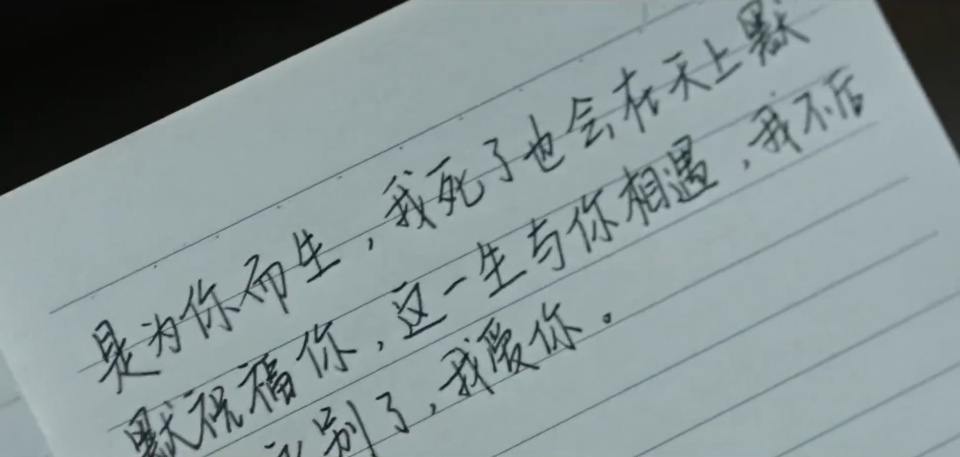 是为你而生，我死了也会在天上默
默祝福你，这一生与你相遇，我不后
别了，我爱你。